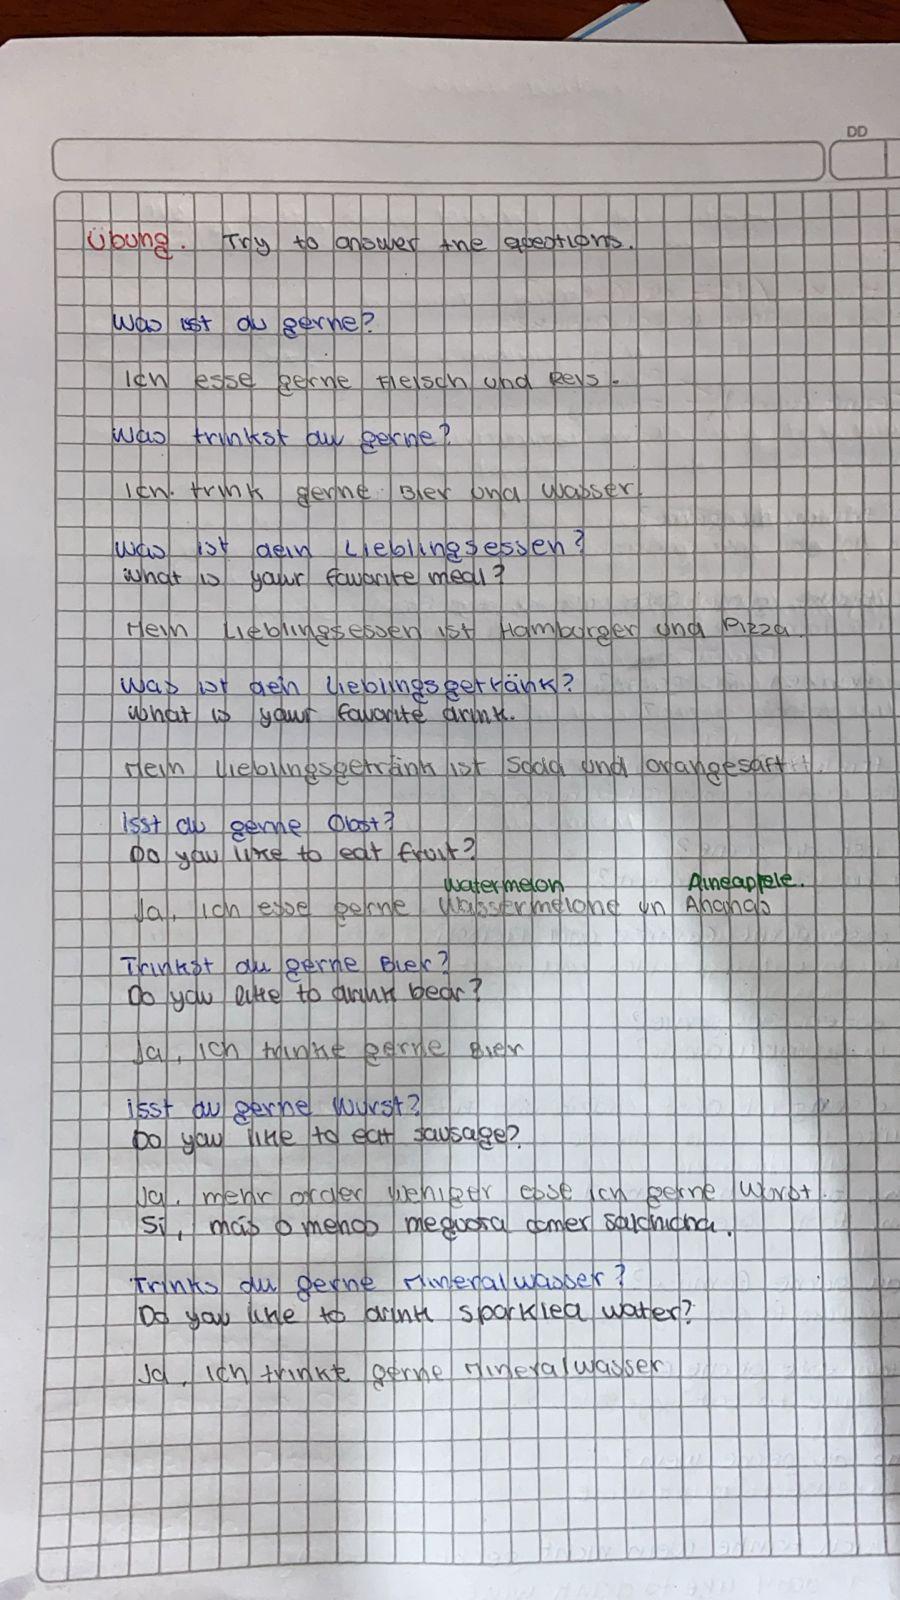 DD
Übung. Try to answer the questions.
Was ist du gerne?
Ich esse gerne Fleisch und Reis.
Was trinkst du gerne?
Ich trink gerne Bier und Wasser.
Was ist dein Lieblingsessen?
What is your favorite meal?
Mein Lieblingsessen ist Hamburger und Pizza.
Was ist dein Lieblingsgetränk?
What is your favorite drink.
Mein Lieblingsgetränk ist Soda und orangesaft.
Isst du gerne Obst?
Do you like to eat fruit?
Watermelon Aineapple.
Ja, ich esse gerne Wassermelone un Ananas
Trinkst du gerne Bier?
Do you like to drink bear?
Ja, ich trinke gerne Bier
isst du gerne Wurst?
Do you like to eat sausage?
Ja, mehr order weniger esse ich gerne Wurst.
Si, más o menos me gusta comer salchicha.
Trinks du gerne Mineralwasser?
Do you like to drink sparklea water?
Ja, ich trinke gerne Mineralwasser